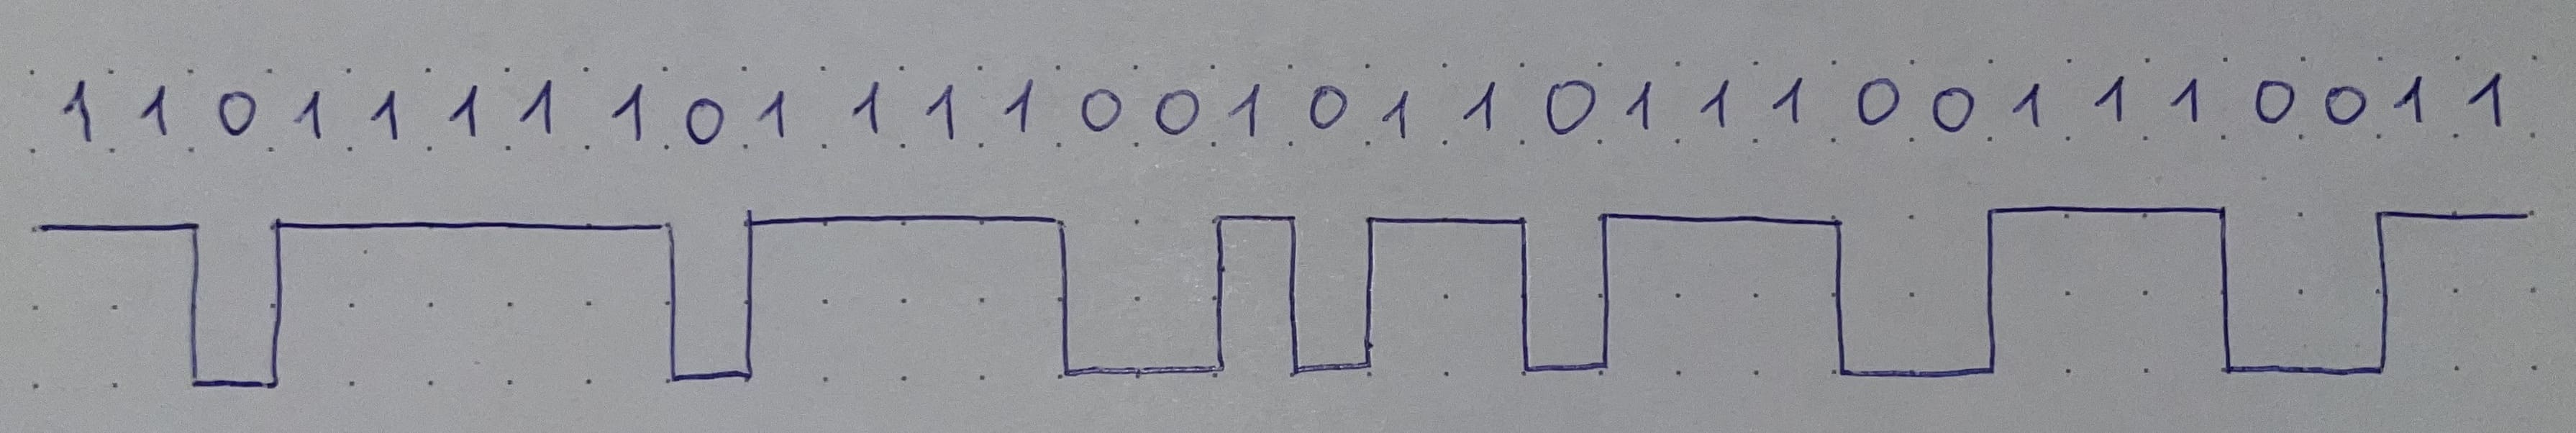 1 1 0 1 1 1 1 1 0 1 1 1 1 0 0 1 0 1 1 0 1 1 1 0 0 1 1 1 0 0 1 1